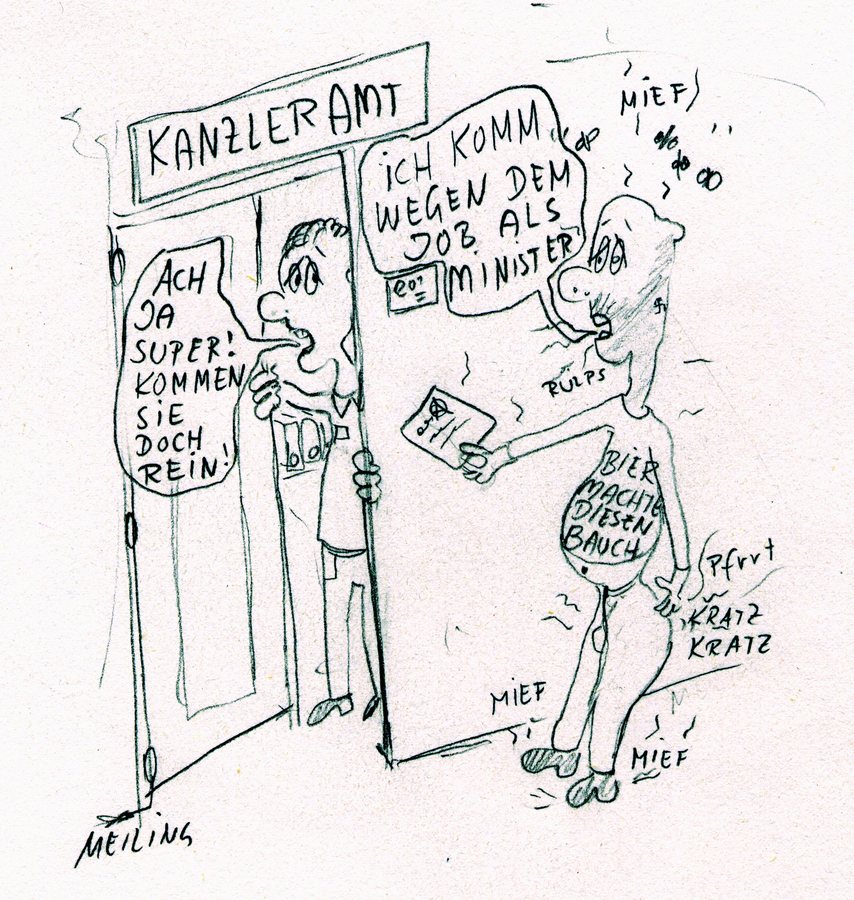 KANZLERAMT
ICH KOMM
WEGEN DEM
JOB ALS
MINISTER
ACH
JA
SUPER!
KOMMEN
SIE
DOCH
REIN!
MIEF
RÜLPS
BIER
MACHTE
DIESEN
BAUCH
Pfrrt
KRATZ
KRATZ
MIEF
MIEF
MEILING